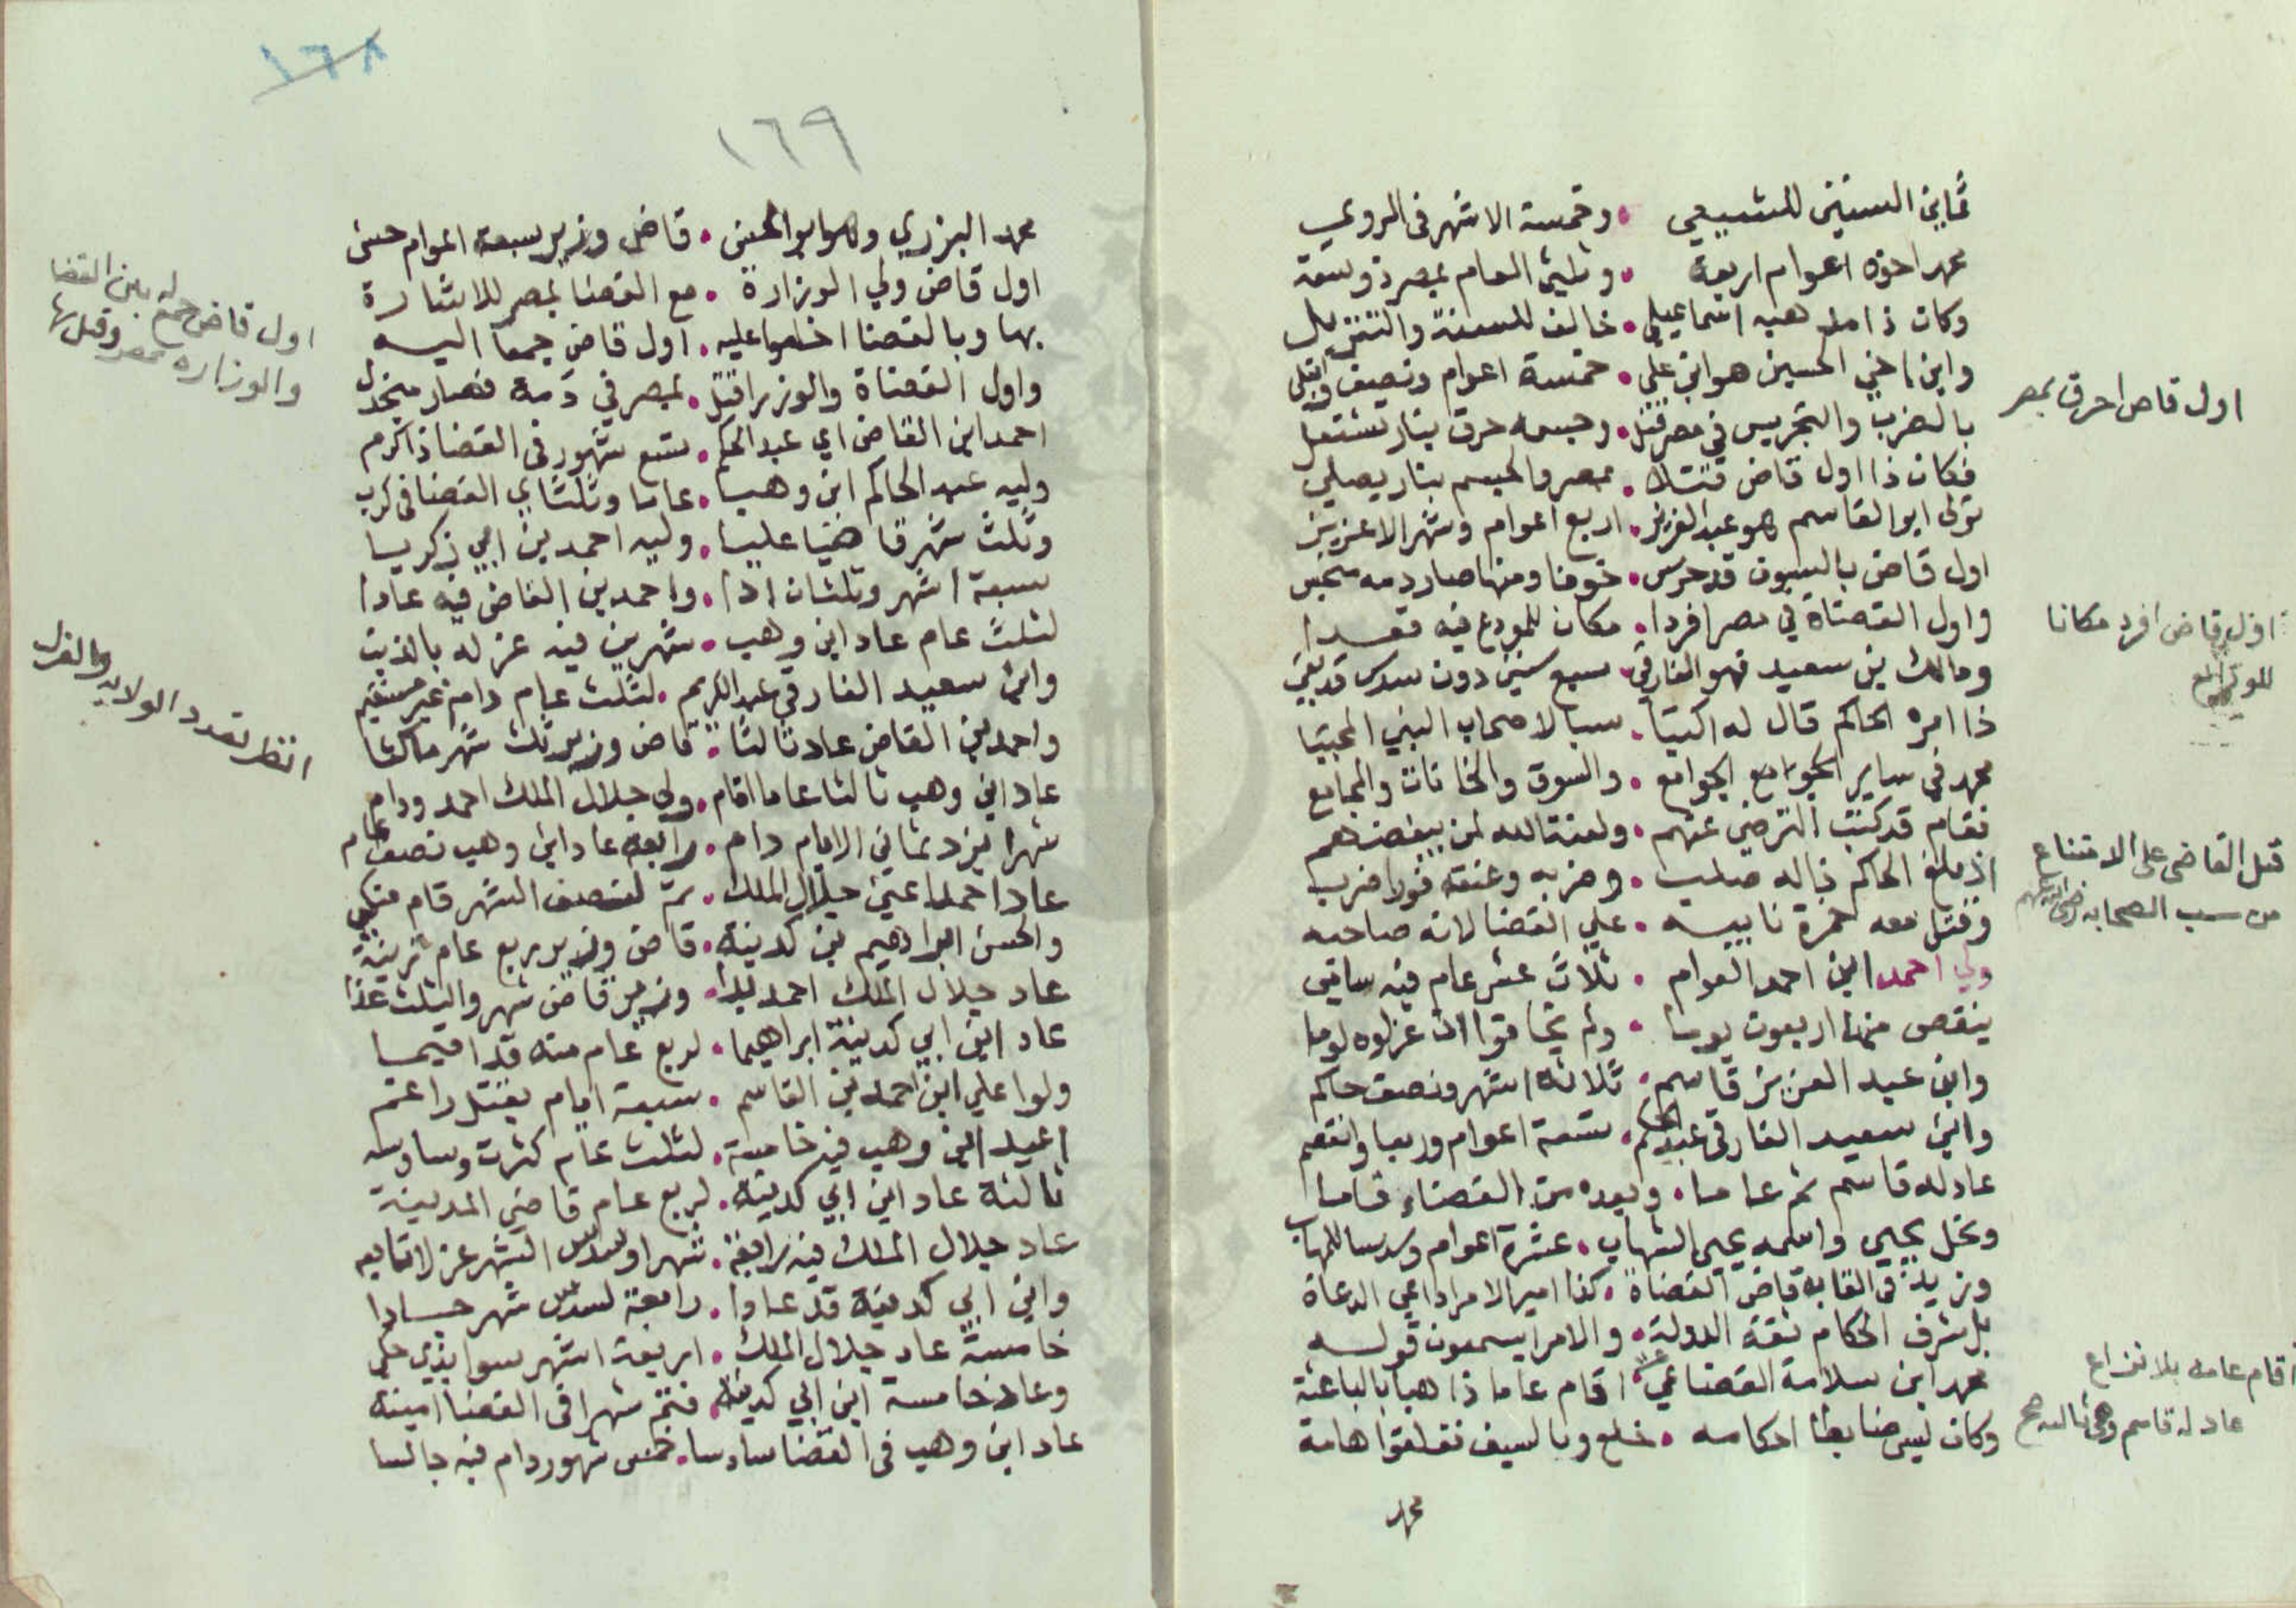 ثماني السنين للشيعي • وخمسة الاشهر في المروي
محمد اخوه اعوام اربعة • وثلثي العام بمصر ذو سعة
وكان ذا مذهبه اسماعيلي • خالف للسنة والتنزيل
وابن اخي الحسين هو ابن علي • خمسة اعوام ونصيف وابتلي
بالضرب والتجريس في مصر قتل • وجسمه حرق بنار تشتعل
فكان ذا اول قاض قتلا • بمصر والجسم بنار يصلي
تولى ابو القاسم هو عبد العزيز • اربع اعوام وشهر الا عزيز
اول قاض بالسيوف قد حرس • خوفا ومنها صار دمه نجس
واول القضاة في مصر افردا • مكان للمودع فيه
ومالك بن سعيد فهو الفارقي • سبع سنين دون سدس قد بقي
ذا امره الحاكم قال له اكتبا • سبا لاصحاب النبي المجتبا
محمد في ساير الجوامع الجوامع • والسوق والخانات والمجامع
فقام قد كتب الترضي عنهم • ولعنة الله لمن يبغضهم
اذ بلغ الحاكم ذا له صلب • وضربه وعنقه فورا ضرب
وقتل معه حمزة نايبه • علي القضا لانه صاحبه
ولي احمد ابن احمد العوام • ثلاث عشر عام فيه سامي
ينقص منها اربعون يوما • ولم يخافوا ان عزلوه لوما
وابن عبد العزيز قاسم • ثلاثة اشهر ونصف حاكم
وابن سعيد الفارقي عبد الحاكم • تسعة اعوام وربعا وانفصم
عاد له قاسم ثم عاما • وبعده من القضاء قاما
ونجل يحيي واسمه يحيى الشهاب • عشرة اعوام وسدسا للمهاب
وزيد في القابه قاضي القضاة • كذا امير الامرا داعي الدعاة
بل شرف الحكام ثقة الدولة • والامرا يسمعون قوله
محمد ابن سلامة القضاعي • اقام عاما ذاهبا بالباعثة
وكان ليس ضابطا احكامه • خلع وبالسيف هامة
محمد
اول قاض احرق بمصر
اول قاض افرد مكانا
للمودع
قتل القاضي على الامتناع
من سب الصحابه رضي الله عنهم
اقام عامه بلا نزاع
عاد له قاسم وهي ثالثه صح
١٦٨
١٦٩
محمد اليزوري وهو ابو الحسن • قاض وزير سبعة اعوام حسن
اول قاض ولي الوزارة • مع القضا بمصر للاشارة
بها وبالقضا اخلعوا عليه • اول قاض جمعا اليه
واول القضاة والوزرا قتل • بمصر في دمه فصار منجدل
احمد ابن القاضي اي عبد الحكم • تسع شهور في القضا ذا كرم
وليه عبد الحاكم ابن وهب • عاما وثلثا في القضا في كرب
وثلث شهر قاضيا عليا • وليه احمد بن ابي زكريا
سبعة اشهر وثلثان اذا • واحمد بن القاضي فيه عادا
لثلث عام عاد ابن وهب • شهرين فيه عزله بالذنب
وابن سعيد الفارقي عبد الكريم • لثلث عام دام غير مستقيم
واحمد بن القاضي عاد ثالثا • قاض وزير ثلث شهر ماكثا
عاد ابن وهب ثالثا عاما اقام • ولي جلال الملك احمد ودام
شهرا يزد ثماني الايام دام • رابعة عاد ابن وهب نصف عام
عاد احمد اعني جلال الملك • ثم لنصف الشهر قام
والحسن ابراهيم بن كدينة • قاض وزير ربع عام زينة
عاد جلال الملك احمد • وزير قاض شهر والثلث غذا
عاد ابن ابي كدينة ابراهيما • لربع عام منه قد اقيما
ولوا علي ابن احمد بن القاسم • سبعة ايام بقتل راغم
اعيد ابن وهب فيه خامسة • لثلث عام كثرت وساوسه
ثالثة عاد ابن ابي كدينة • لربع عام قاضي المدينة
عاد جلال الملك فيه رابعة • شهرا وسدس الشهر عزلا تابعه
وابن ابي كدينة قد عادا • رابعة لسدس شهر سادا
خامسة عاد جلال الملك • اربعة اشهر سوا
وعاد خامسة ابن ابي كدينة • فتم شهرا في القضا امينه
عاد ابن وهب في القضا سادسا • خمس شهور دام فيه جالسا
اول قاض جمع له بين القضا
والوزاره بمصر وقتل بها
انظر تعدد الولايه والعزل